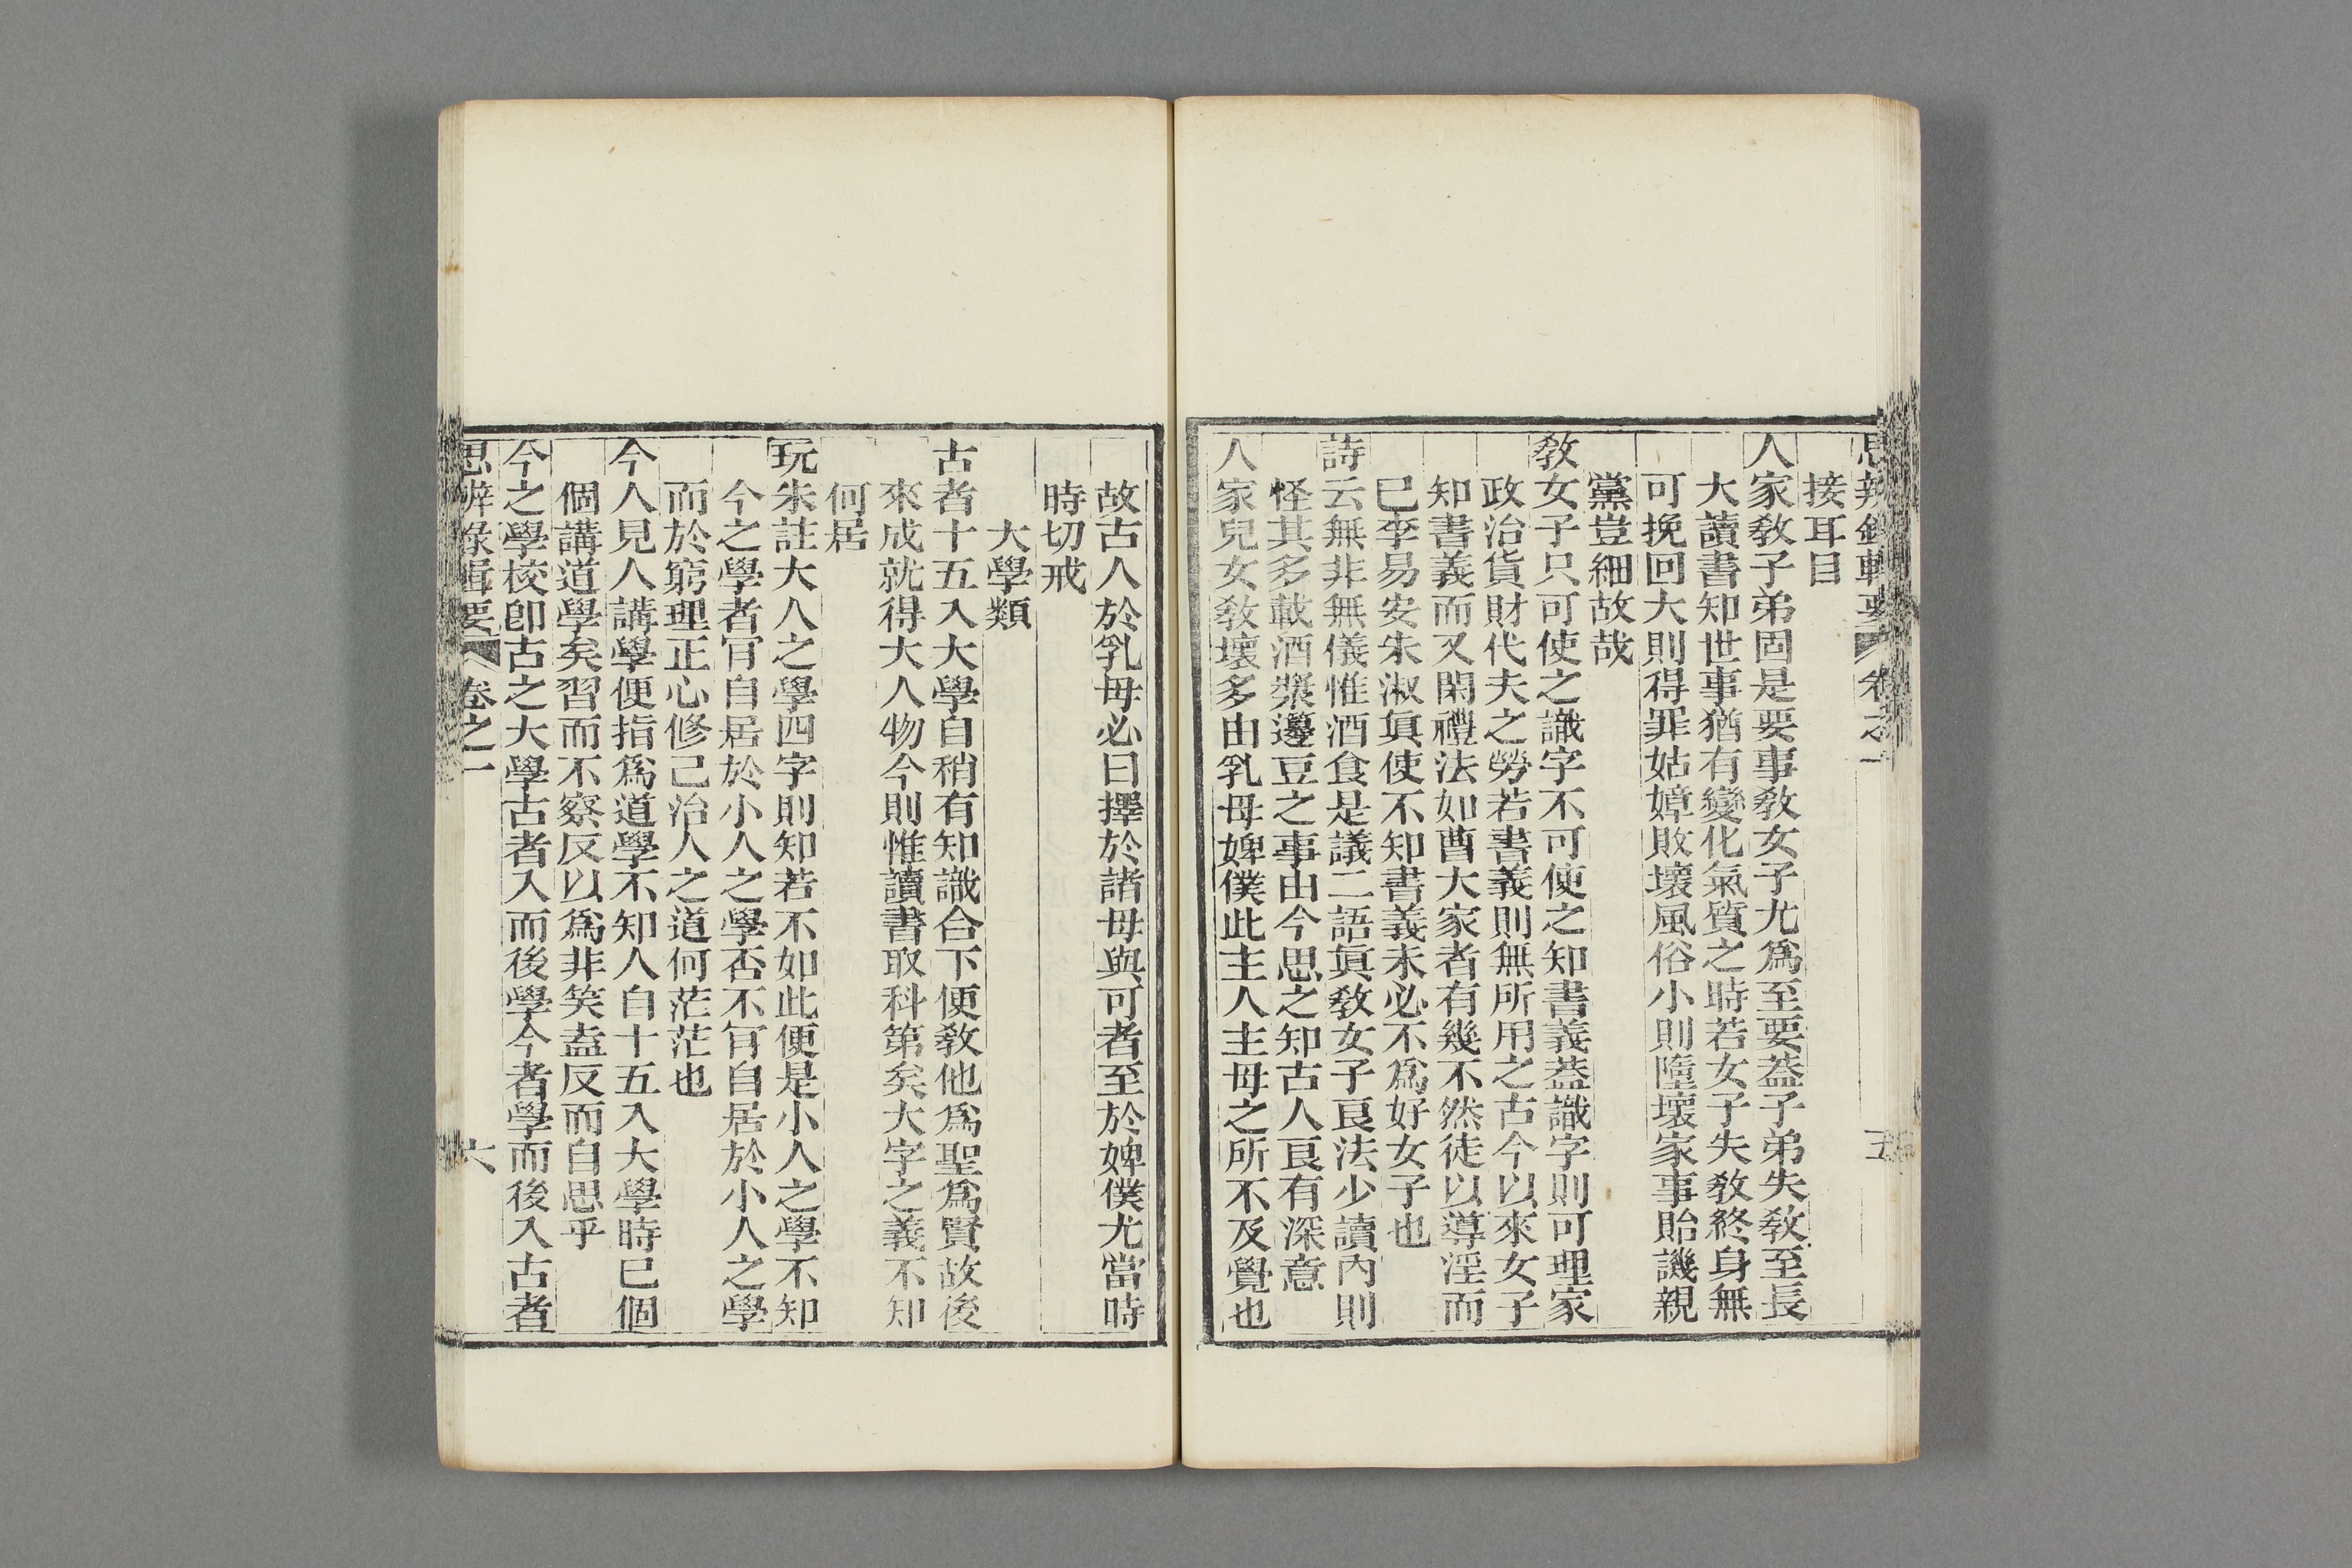 思辨錄輯要 卷之一 五
接耳目
人家敎子弟固是要事敎女子尤爲至要葢子弟失敎至長
大讀書知世事猶有變化氣質之時若女子失敎終身無
可挽回大則得罪姑嫜敗壞風俗小則墮壞家事貽譏親
黨豈細故哉
敎女子只可使之識字不可使之知書義葢識字則可理家
政治貨財代夫之勞若書義則無所用之古今以來女子
知書義而又閑禮法如曹大家者有幾不然徒以導淫而
已李易安朱淑眞使不知書義未必不爲好女子也
詩云無非無儀惟酒食是議二語眞敎女子良法少讀內則
怪其多載酒漿籩豆之事由今思之知古人良有深意
人家兒女敎壞多由乳母婢僕此主人主母之所不及覺也
故古人於乳母必曰擇於諸母與可者至於婢僕尤當時
時切戒
大學類
古者十五入大學自稍有知識合下便敎他爲聖爲賢故後
來成就得大人物今則惟讀書取科第矣大字之義不知
何居
玩朱註大人之學四字則知若不如此便是小人之學不知
今之學者肎自居於小人之學否不肎自居於小人之學
而於窮理正心修己治人之道何茫茫也
今人見人講學便指爲道學不知人自十五入大學時已個
個講道學矣習而不察反以爲非笑盍反而自思乎
今之學校卽古之大學古者入而後學今者學而後入古者
思辨錄輯要 卷之一 六